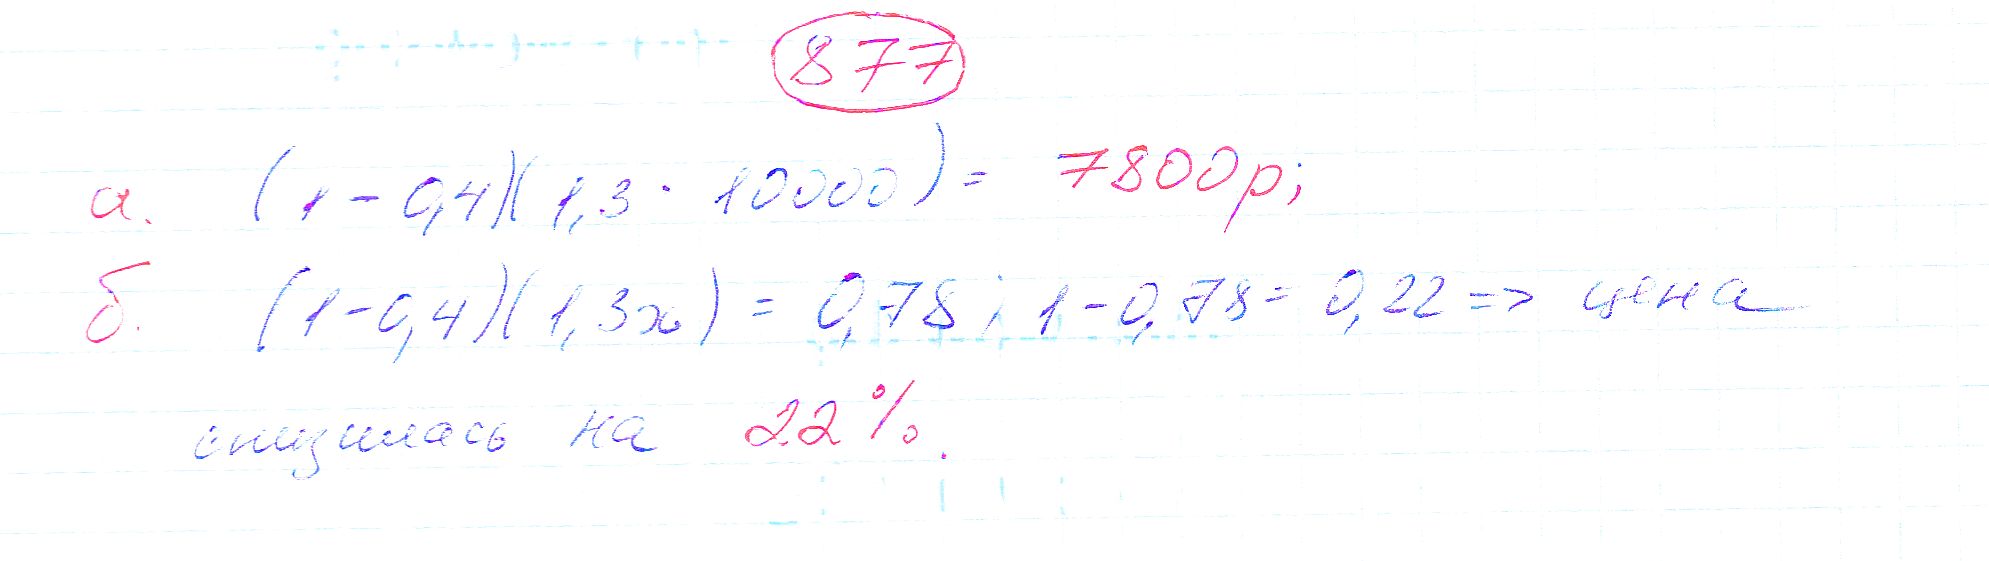 877
а. (1-0,4)(1,3·10000)= 7800р;
б. (1-0,4)(1,3x)= 0,78; 1-0,78=0,22=> цена
снизилась на 22%.